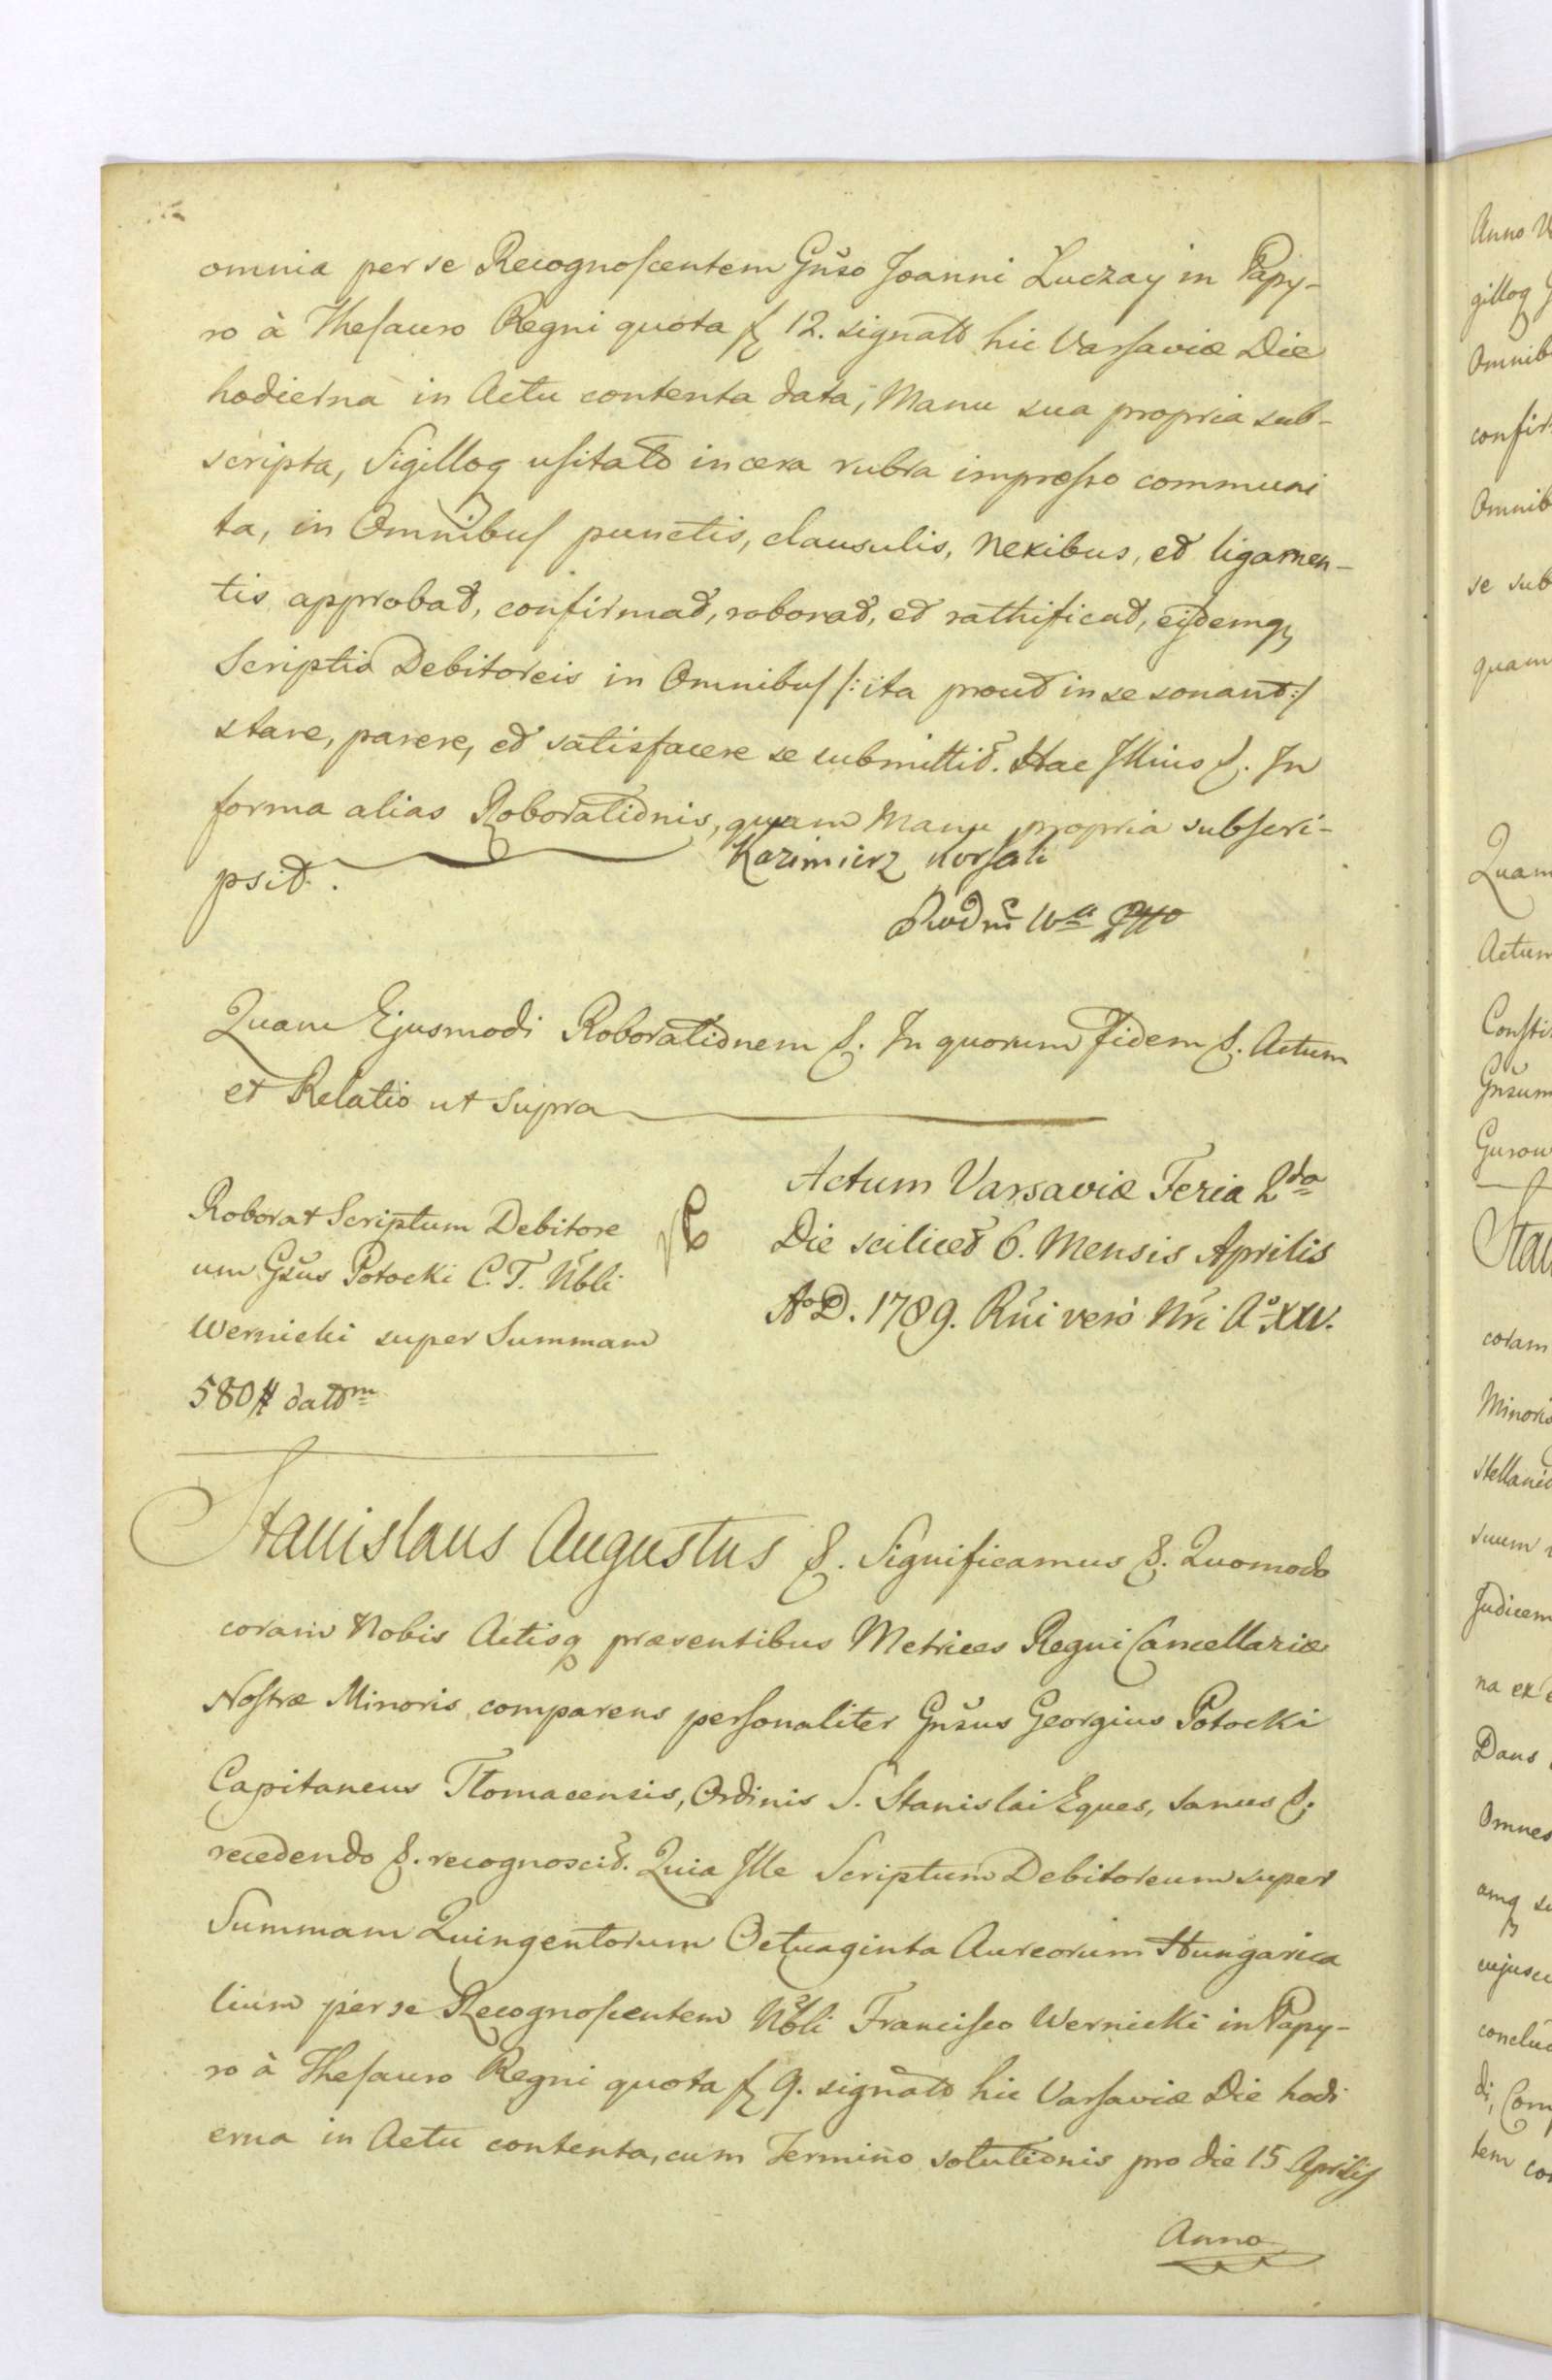 omnia per se Recognoscentem Gn̄so Joanni Łuczay in Papy-
ro à Thesauro Regni quota fl 12. signato hic Varsaviæ Die
hodierna in Actu contenta data, Manu sua propria sub-
scripta, Sigilloq usitato in cera rubra impresso communi
ta, in Omnibus punctis, clausulis, nexibus, et ligamen-
tis approbat, confirmat, roborat, et rathificat, eisdemq
Scriptis Debitoreis in Omnibus /: ita prout in se sonant :/
stare, parere, et satisfacere se submittit. Hac Illius &. In
forma alias Roborationis, quam Manu propria subscri-
psit.
Kazimierz Korsak
Quam Ejusmodi Roborationem &. In quorum Fidem &. Actum
et Relatio ut supra
Roborat Scriptum Debitore
um Gn̄sus Potocki C. T. Nbli
Wernicki super Summam
580 # datm
Actum Varsaviæ Feria 2da
Die scilicet 6. Mensis Aprilis
Ao D. 1789. Rn̄i verò Nr̄i Ao XXV.
Stanislaus Augustus &. Significamus &. Quomodo
coram Nobis Actisq præsentibus Metrices Regni Cancellariæ
Nostræ Minoris comparens personaliter Gn̄sus Georgius Potocki
Capitaneus Tłomacensis, Ordinis S. Stanislai Eques, sanus &.
recedendo &. recognoscit. Quia Ille Scriptum Debitoreum super
Summam Quingentorum Octuaginta Aureorum Hungarica
lium per se Recognoscentem Nbli Francisco Wernicki in Papy-
ro à Thesauro Regni quota fl 9. signato hic Varsaviæ Die hodi
erna in Actu contenta, cum Termino solutionis pro die 15 Aprilis
Anno
Anno
Omnib
Omnib
se sub
quam
Quam
Actum
Gn̄sum
Gurow
coram
Minoris
suum
Judicem
na ex
Dans
Omnes
di, Com
tem